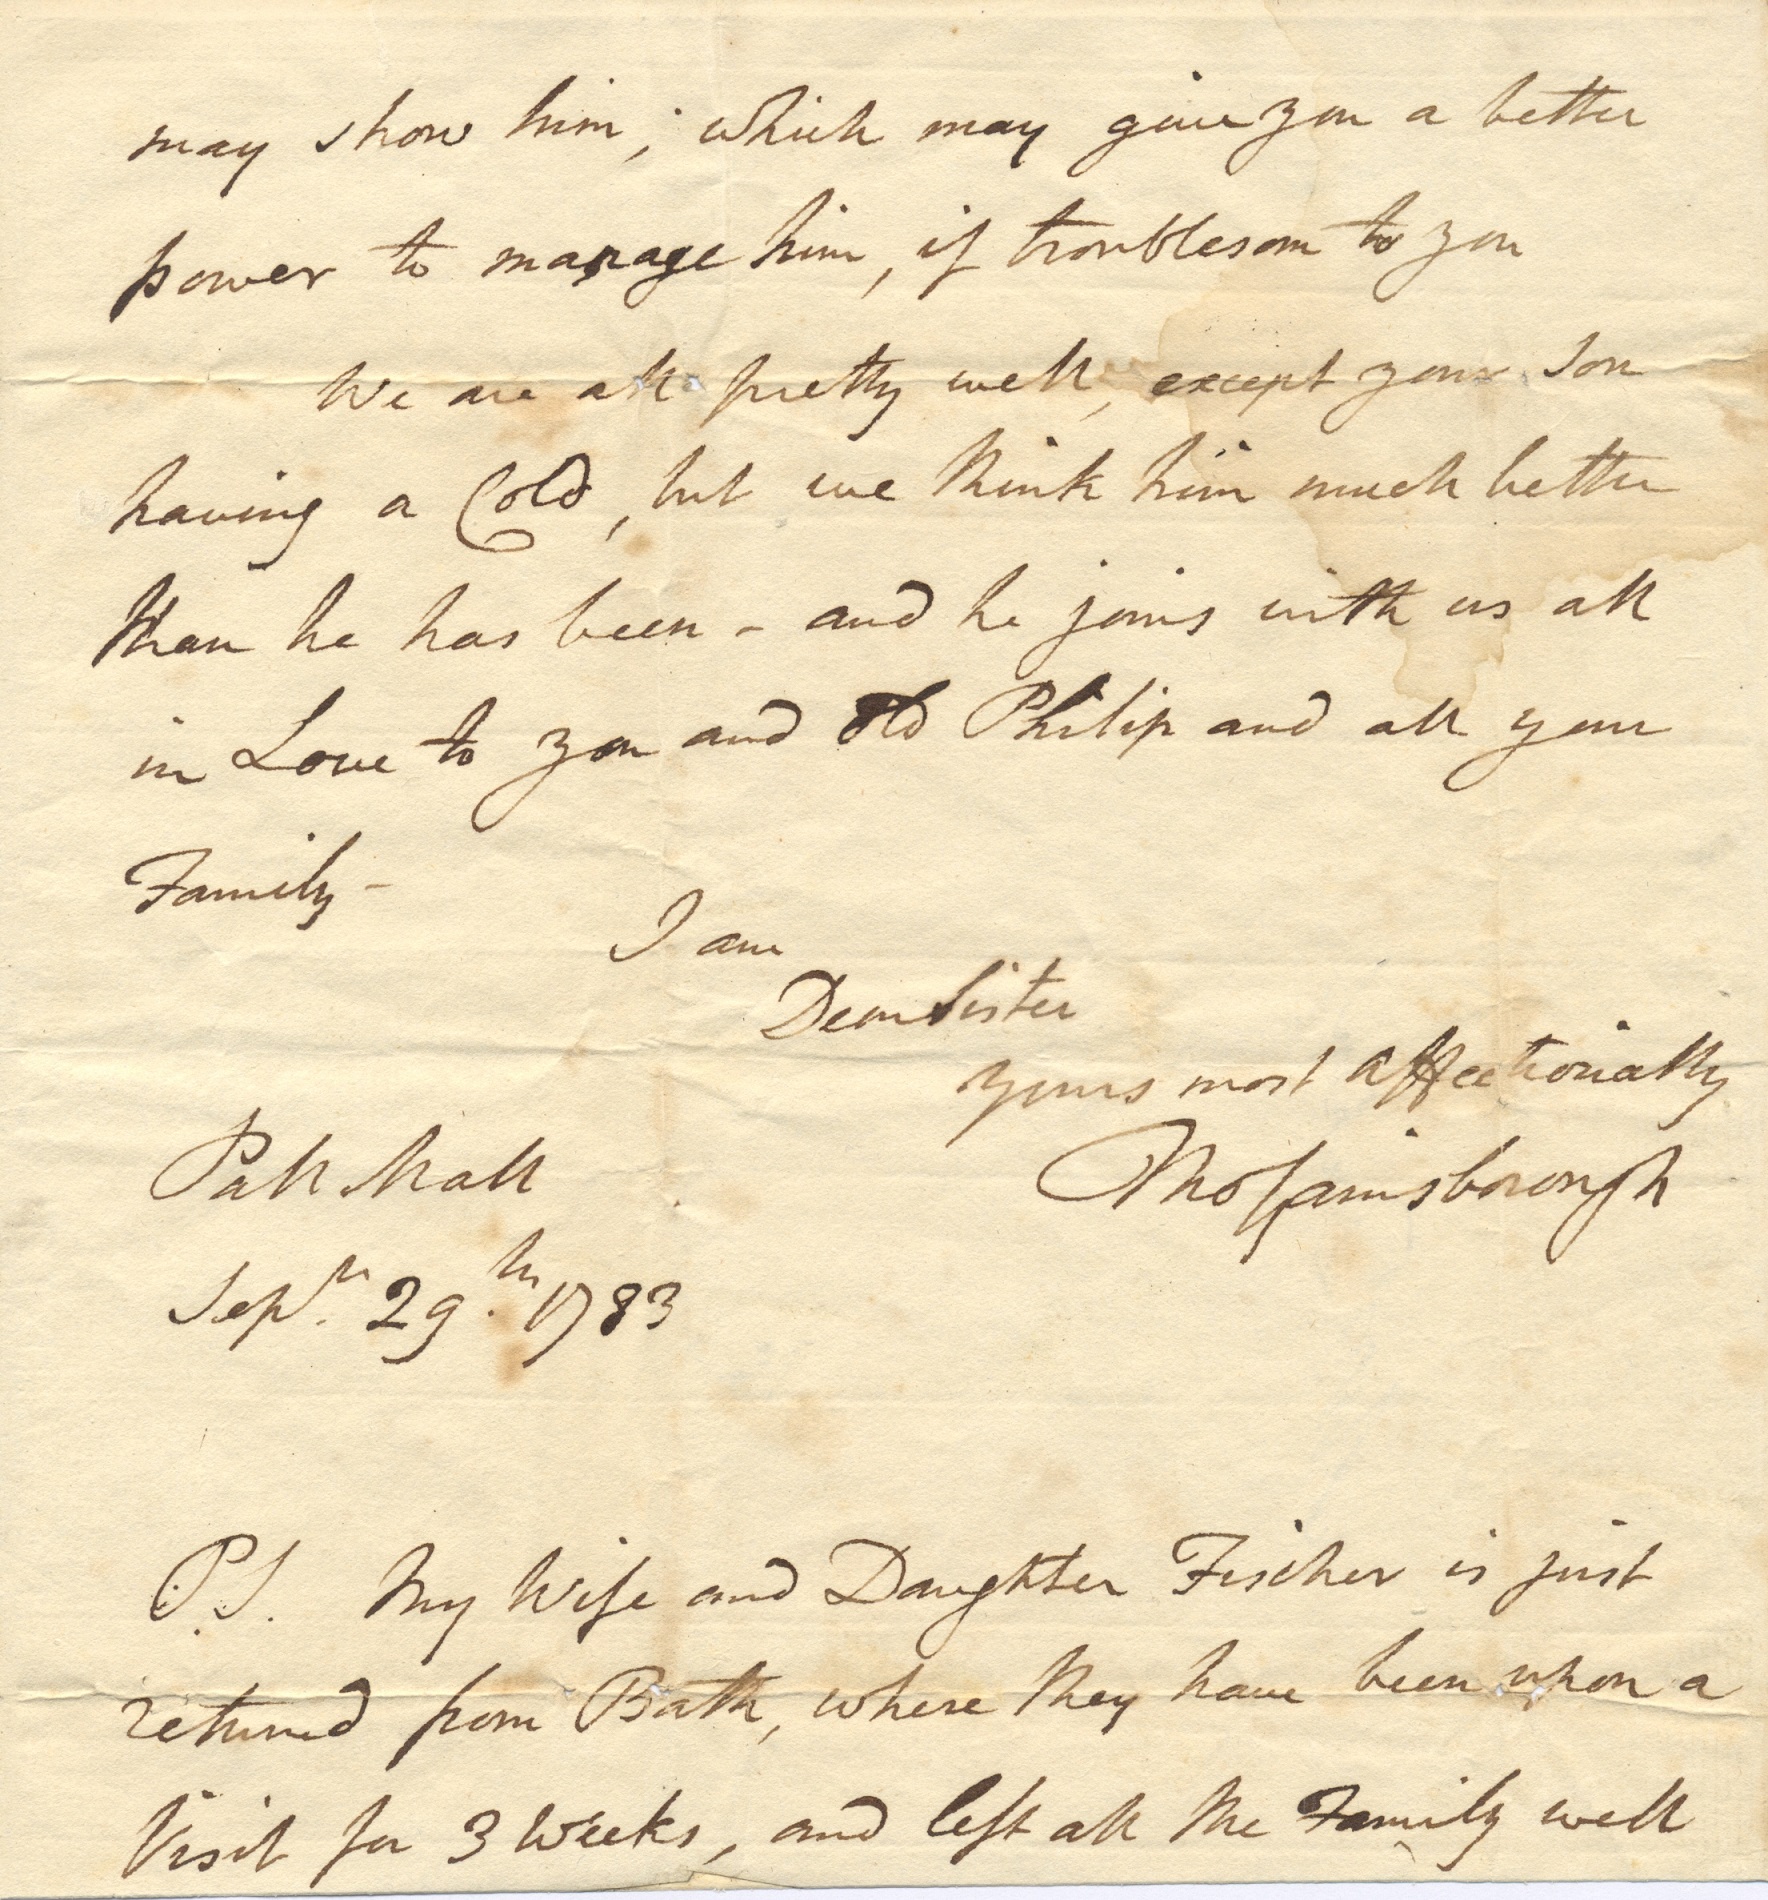 may show him; which may give you a better
power to manage him, if troublesom to you
We are all pretty well, except your Son
having a Cold, but we think him much better
than he has been - and he joins with us all
in Love to you and Old Philip and all your
Family -
I am
Dear Sister
yours most affectionally
Tho Gainsborough
Pall Mall
Sepr. 29.th 1783
P.S. My Wife and Daughter Fischer is just
returned from Bath, where they have been upon a
Visit for 3 Weeks, and left all the Family well